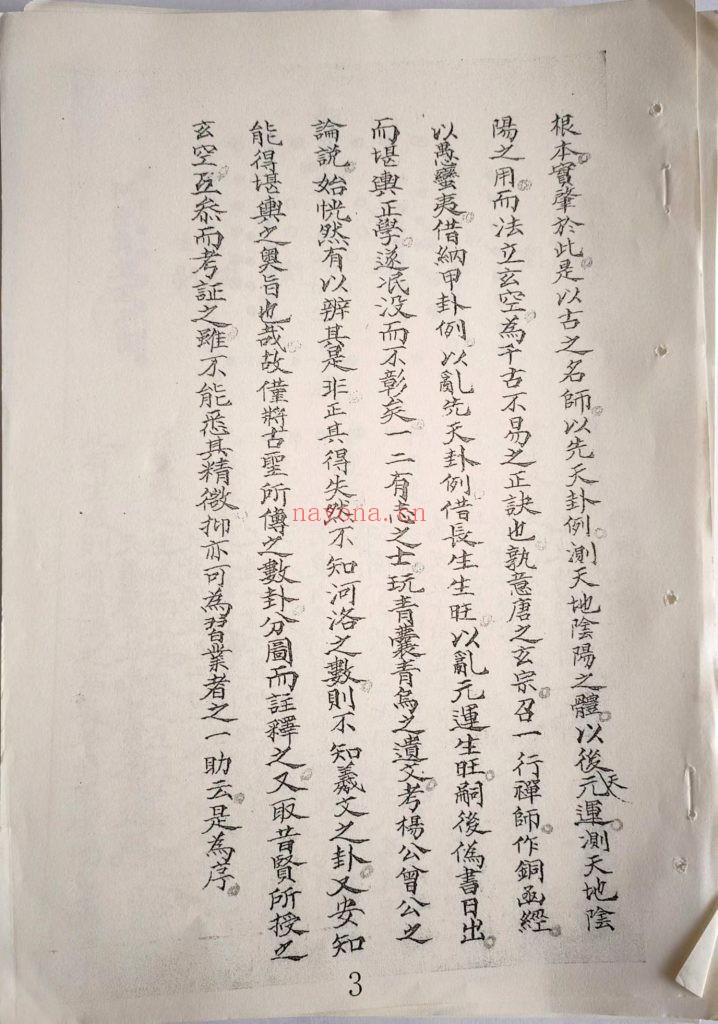 根本實肇於此是以古之名師以先天卦例測天地陰陽之體以後天元運測天地陰
陽之用而法立玄空為千古不易之正訣也孰意唐之玄宗召一行禪師作銅函經
以愚蠻夷借納甲卦例以亂先天卦例借長生生旺以亂元運生旺嗣後偽書日出
而堪輿正學遂泯没而不彰矣一二有志之士玩青囊青烏之遺文考楊公曾公之
論説始恍然有以辨其是非正其得失然不知河洛之數則不知羲文之卦又安知
能得堪輿之奥旨也哉故僅將古聖所傳之數卦分圖而註釋之又取昔賢所授之
玄空互叅而考証之雖不能悉其精微抑亦可為習業者之一助云是為序
nayona.cn
3